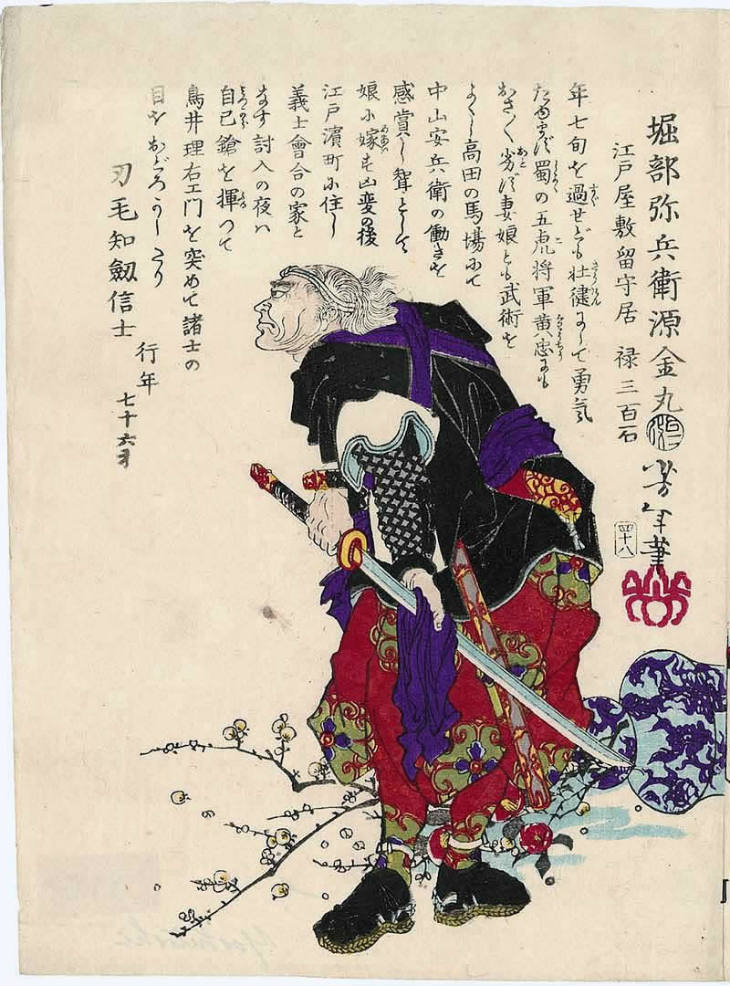 堀部弥兵衛源金丸
江戸屋敷留守居 禄三百石
年七旬を過せども壮健にして勇気
蜀の五虎将軍黄忠にも
おさ〱劣ず妻娘とも武術を
よくし高田の馬場にて
中山安兵衛の働きを
感賞し聟として
娘に嫁す凶変の後
江戸濱町に住し
義士會合の家と
なす討入の夜は
自己鎗を揮つて
鳥井理右エ門を突めて諸士の
目をおどろかしたり
刃毛知劔信士
行年
七十六才
芳年筆
四十八